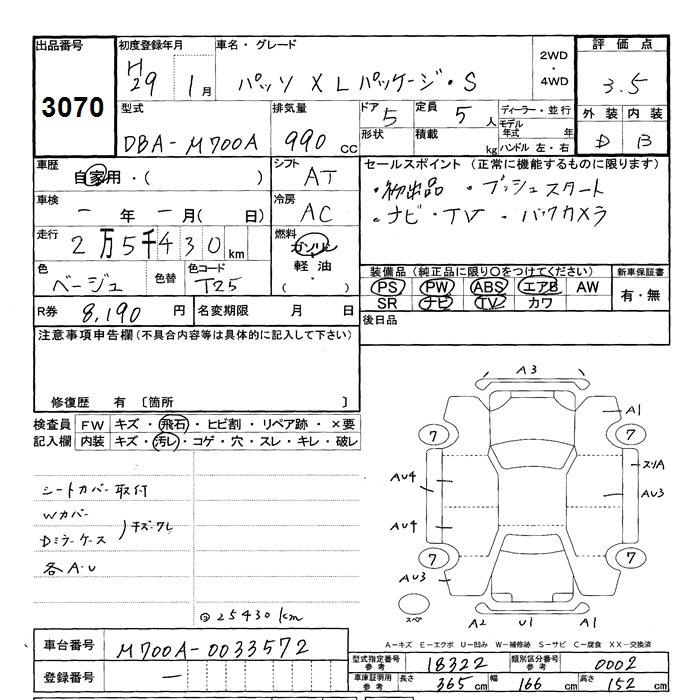 出品番号
3070
初度登録年月
H29 1月
車名・グレード
パッソ X L パッケージ・S
2WD
・
4WD
評価点
3.5
型式
DBA-M700A
排気量
990 cc
ドア 5
定員 5 人
形状
積載 kg
ディーラー・並行
モデル年式 年
ハンドル 左・右
外装 内装
D B
車歴
自家用・( )
シフト
AT
セールスポイント (正常に機能するものに限ります)
・初出品 ・プッシュスタート
・ナビ・TV ・バックカメラ
車検
ー年ー月( 日)
冷房
AC
走行
2万5千430km
燃料
ガソリン
軽油
( ・ )
色
ベージュ
色替
色コード
T25
装備品 (純正品に限り○をつけてください)
PS PW ABS エアB AW
SR ナビ TV カワ
新車保証書
有・無
R券 8,190 円
名変期限 月 日
後日品
注意事項申告欄 (不具合内容等は具体的に記入して下さい)
修復歴 有 〔箇所 〕
検査員記入欄
FW キズ・飛石・ヒビ割・リペア跡・×要
内装 キズ・汚レ・コゲ・穴・スレ・キレ・破レ
シートカバー取付
Wカバー
Dミラーケース
)キズ・ワレ
各A・U
@25430km
A3
A1
7
7
スリA
AU4
AU3
AU4
7
7
AU3
スペア
A2
U1
A1
A-キズ E-エクボ U-凹み W-補修跡 S-サビ C-腐食 XX-交換済
車台番号
M700A-0033572
登録番号
ー
型式指定番号参考 18322
類別区分番号参考 0002
車庫証明用参考
長さ 365 cm
幅 166 cm
高さ 152 cm